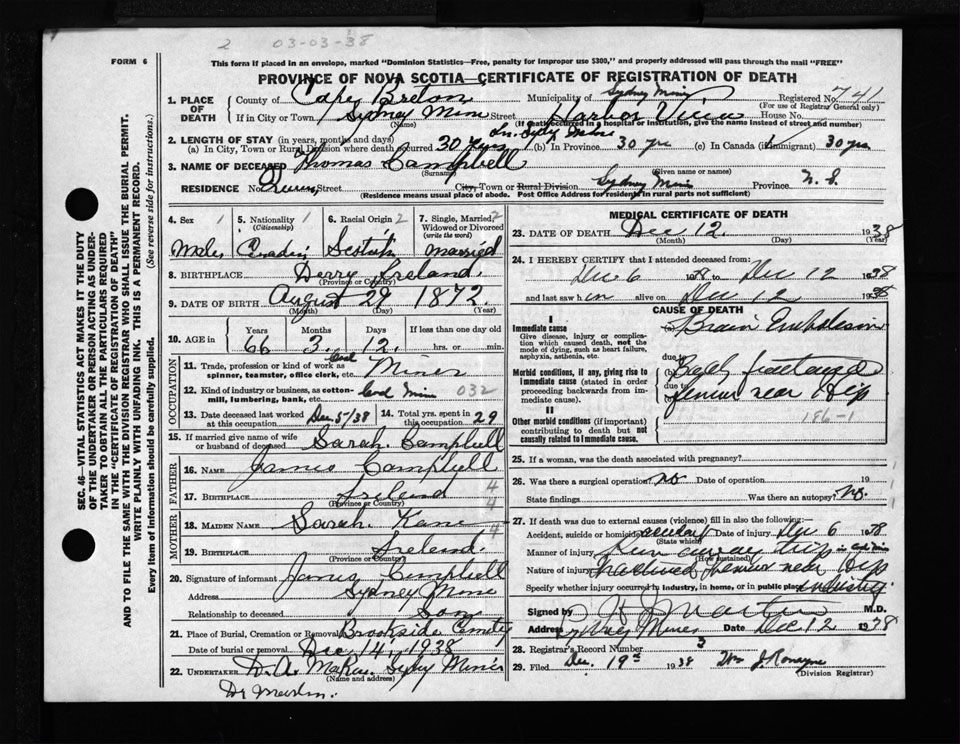 2 03-03-38
FORM 6
This form if placed in an envelope, marked "Dominion Statistics—Free, penalty for improper use $300," and properly addressed will pass through the mail "FREE"
PROVINCE OF NOVA SCOTIA—CERTIFICATE OF REGISTRATION OF DEATH
1. PLACE OF DEATH { County of Cape Breton Municipality of Sydney Mines Registered No. 741
(For use of Registrar General only)
If in City or Town Sydney Mines Street Harbor View House No.
(Name) (If death occurred in a hospital or institution, give the name instead of street and number)
2. LENGTH OF STAY (in years, months and days)
(a) In City, Town or Rural Division where death occurred 30 yrs (b) In Province 30 yrs (c) In Canada (if immigrant) 30 yrs
3. NAME OF DECEASED Thomas Campbell
(Surname) (Given name or names)
RESIDENCE No. Queen Street City, Town or Rural Division Sydney Mines Province N.S.
(Residence means usual place of abode. Post Office Address for residents in rural parts not sufficient)
4. Sex 1 Male
5. Nationality 1 (Citizenship) Canadian
6. Racial Origin 2 Scottish
7. Single, Married, Widowed or Divorced (write the word) 2 married
8. BIRTHPLACE Derry Ireland
(Province or Country)
9. DATE OF BIRTH August 29 1872
(Month) (Day) (Year)
10. AGE in { Years 66 Months 3 Days 12 If less than one day old hrs. or min.
OCCUPATION
11. Trade, profession or kind of work as spinner, teamster, office clerk, etc. Coal Miner
12. Kind of industry or business, as cotton-mill, lumbering, bank, etc. Coal Mine 032
13. Date deceased last worked at this occupation Dec 5/38
14. Total yrs. spent in this occupation 29
15. If married give name of wife or husband of deceased Sarah Campbell
FATHER
16. NAME James Campbell
17. BIRTHPLACE Ireland 4
(Province or Country)
MOTHER
18. MAIDEN NAME Sarah Kane 4
19. BIRTHPLACE Ireland
(Province or Country)
20. Signature of informant James Campbell
Address Sydney Mines
Relationship to deceased Son
21. Place of Burial, Cremation or Removal Brookside Cemetery
Date of burial or removal Dec 14 1938
22. UNDERTAKER D. A. Sydney Mines
(Name and address)
MEDICAL CERTIFICATE OF DEATH
23. DATE OF DEATH Dec 12 1938
(Month) (Day) (Year)
24. I HEREBY CERTIFY that I attended deceased from:
Dec 6 1938 to Dec 12 1938
and last saw him alive on Dec 12 1938
CAUSE OF DEATH
I
Immediate cause
Give disease, injury or complication which caused death, not the mode of dying, such as heart failure, asphyxia, asthenia, etc.
(a) Brain Embolism
due to
Morbid conditions, if any, giving rise to immediate cause (stated in order proceeding backwards from immediate).
(b) Badly fractured
due to
(c) femur near Hip
II
Other morbid conditions (if important) contributing to death but not causally related to immediate cause.
186-1
25. If a woman, was the death associated with pregnancy?
26. Was there a surgical operation? No. Date of operation 19
State findings Was there an autopsy? No.
27. If death was due to external causes (violence) fill in also the following:—
Accident, suicide or homicide? accident Date of injury Dec 6 1938
(State which)
Manner of injury Run away trip in coal mine
(How sustained)
Nature of injury Fractured femur near Hip
Specify whether injury occurred in industry, in home, or in public place Industry
Signed by M.D.
Address Sydney Mines Date Dec 12 1938
28. Registrar's Record Number 3
29. Filed Dec. 19th 1938 Wm J. Ronayne
(Division Registrar)
SEC. 46—VITAL STATISTICS ACT MAKES IT THE DUTY
OF THE UNDERTAKER OR PERSON ACTING AS UNDER-
TAKER TO OBTAIN ALL THE PARTICULARS REQUIRED
IN THE "CERTIFICATE OF REGISTRATION OF DEATH"
AND TO FILE THE SAME WITH THE DIVISION REGISTRAR WHO SHALL ISSUE THE BURIAL PERMIT.
WRITE PLAINLY WITH UNFADING INK. THIS IS A PERMANENT RECORD.
Every item of information should be carefully supplied. (See reverse side for instructions.)